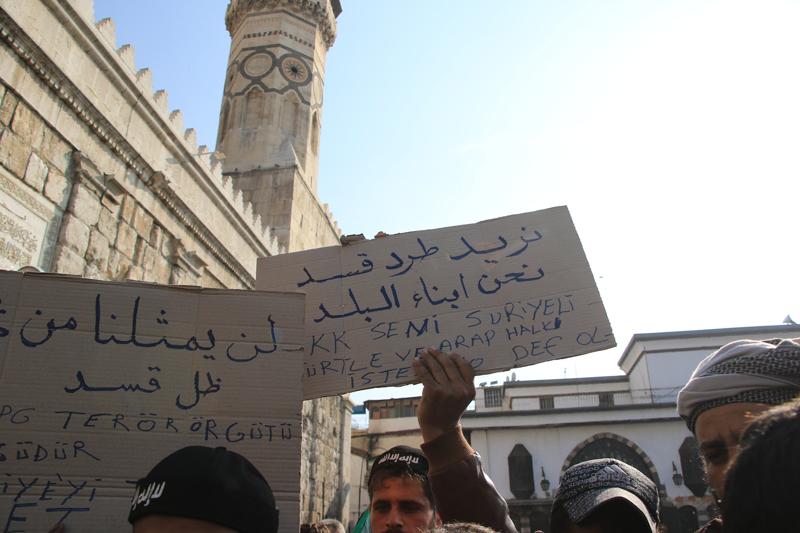 نريد طرد قسد
نحن ابناء البلد
KK SEMI SURIYELI
ÜRTLE VE ARAP HALKI
İSTE DEF OL
لن يمثلنا من
ظل قسد
PG TERÖR ÖRGÜTÜ
ÜDÜR
İYEYİ
ET
لا إله إلا الله